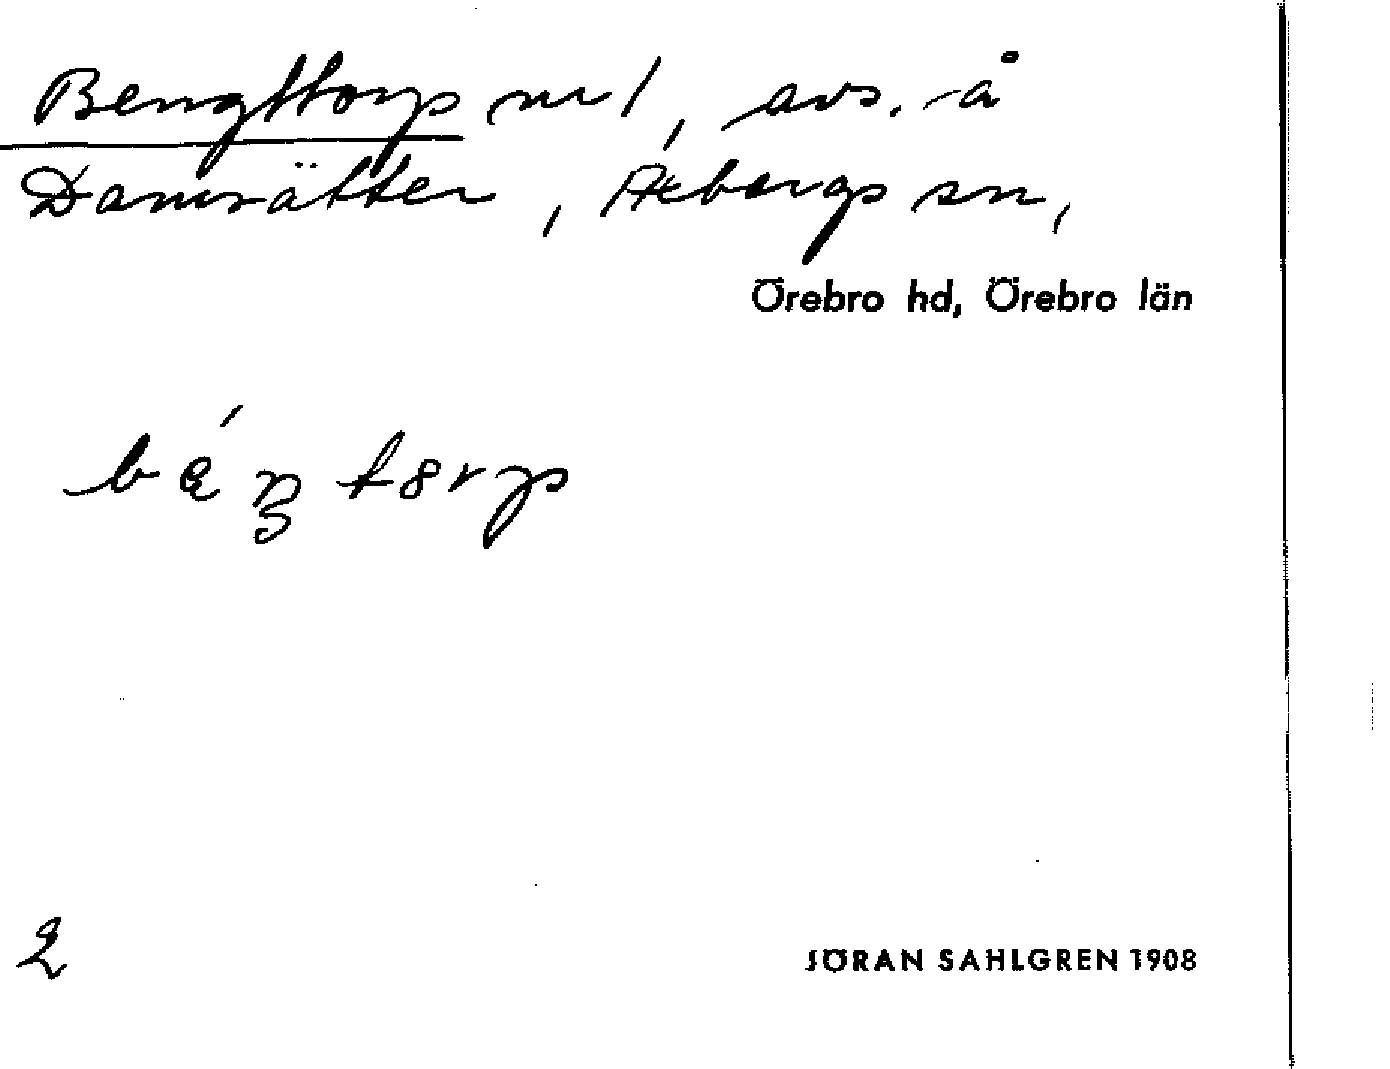 Bengttorp nr 1, avs. å
Damrätter, Axbergs sn,
Örebro hd, Örebro län
2
JÖRAN SAHLGREN 1908